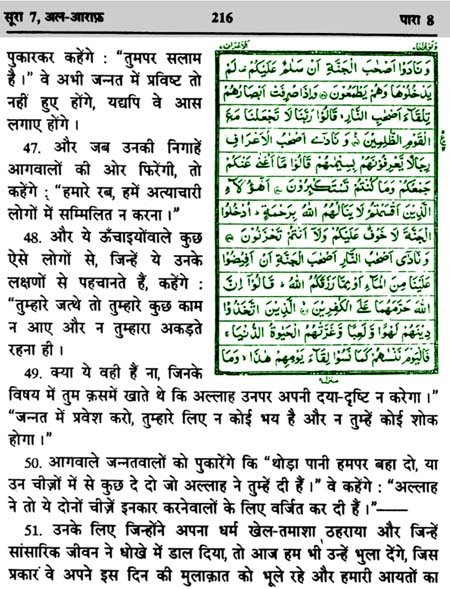 सूरा 7, अल-आराफ़ 216 पारा 8
पुकारकर कहेंगे : “तुमपर सलाम
है।” वे अभी जन्नत में प्रविष्ट तो
नहीं हुए होंगे, यद्यपि वे आस
लगाए होंगे।
47. और जब उनकी निगाहें
आगवालों की ओर फिरेंगी, तो
कहेंगे : “हमारे रब, हमें अत्याचारी
लोगों में सम्मिलित न करना।”
48. और ये ऊँचाइयोंवाले कुछ
ऐसे लोगों से, जिन्हें ये उनके
लक्षणों से पहचानते हैं, कहेंगे :
“तुम्हारे जत्थे तो तुम्हारे कुछ काम
न आए और न तुम्हारा अकड़ते
रहना ही।
49. क्या ये वही हैं ना, जिनके
وَنَادَوْا اَصْحٰبَ الْجَنَّةِ اَنْ سَلٰمٌ عَلَيْكُمْ لَمْ
يَدْخُلُوْهَا وَهُمْ يَطْمَعُوْنَ ۝ وَاِذَا صُرِفَتْ اَبْصَارُهُمْ
تِلْقَآءَ اَصْحٰبِ النَّارِ قَالُوْا رَبَّنَا لَا تَجْعَلْنَا مَعَ
الْقَوْمِ الظّٰلِمِيْنَ ۝ وَنَادٰٓى اَصْحٰبُ الْاَعْرَافِ
رِجَالًا يَّعْرِفُوْنَهُمْ بِسِيْمٰهُمْ قَالُوْا مَآ اَغْنٰى عَنْكُمْ
جَمْعُكُمْ وَمَا كُنْتُمْ تَسْتَكْبِرُوْنَ ۝ اَهٰٓؤُلَآءِ
الَّذِيْنَ اَقْسَمْتُمْ لَا يَنَالُهُمُ اللّٰهُ بِرَحْمَةٍ اُدْخُلُوا
الْجَنَّةَ لَا خَوْفٌ عَلَيْكُمْ وَلَآ اَنْتُمْ تَحْزَنُوْنَ ۝
وَنَادٰٓى اَصْحٰبُ النَّارِ اَصْحٰبَ الْجَنَّةِ اَنْ اَفِيْضُوْا
عَلَيْنَا مِنَ الْمَآءِ اَوْ مِمَّا رَزَقَكُمُ اللّٰهُ قَالُوْٓا اِنَّ
اللّٰهَ حَرَّمَهُمَا عَلَى الْكٰفِرِيْنَ ۝ الَّذِيْنَ اتَّخَذُوْا
دِيْنَهُمْ لَهْوًا وَّلَعِبًا وَّغَرَّتْهُمُ الْحَيٰوةُ الدُّنْيَا
فَالْيَوْمَ نَنْسٰىهُمْ كَمَا نَسُوْا لِقَآءَ يَوْمِهِمْ هٰذَا وَمَا
विषय में तुम क़समें खाते थे कि अल्लाह उनपर अपनी दया-दृष्टि न करेगा।”
“जन्नत में प्रवेश करो, तुम्हारे लिए न कोई भय है और न तुम्हें कोई शोक
होगा।”
50. आगवाले जन्नतवालों को पुकारेंगे कि “थोड़ा पानी हमपर बहा दो, या
उन चीज़ों में से कुछ दे दो जो अल्लाह ने तुम्हें दी हैं।” वे कहेंगे : “अल्लाह
ने तो ये दोनों चीज़ें इनकार करनेवालों के लिए वर्जित कर दी हैं।”——
51. उनके लिए जिन्होंने अपना धर्म खेल-तमाशा ठहराया और जिन्हें
सांसारिक जीवन ने धोखे में डाल दिया, तो आज हम भी उन्हें भुला देंगे, जिस
प्रकार वे अपने इस दिन की मुलाक़ात को भूले रहे और हमारी आयतों का